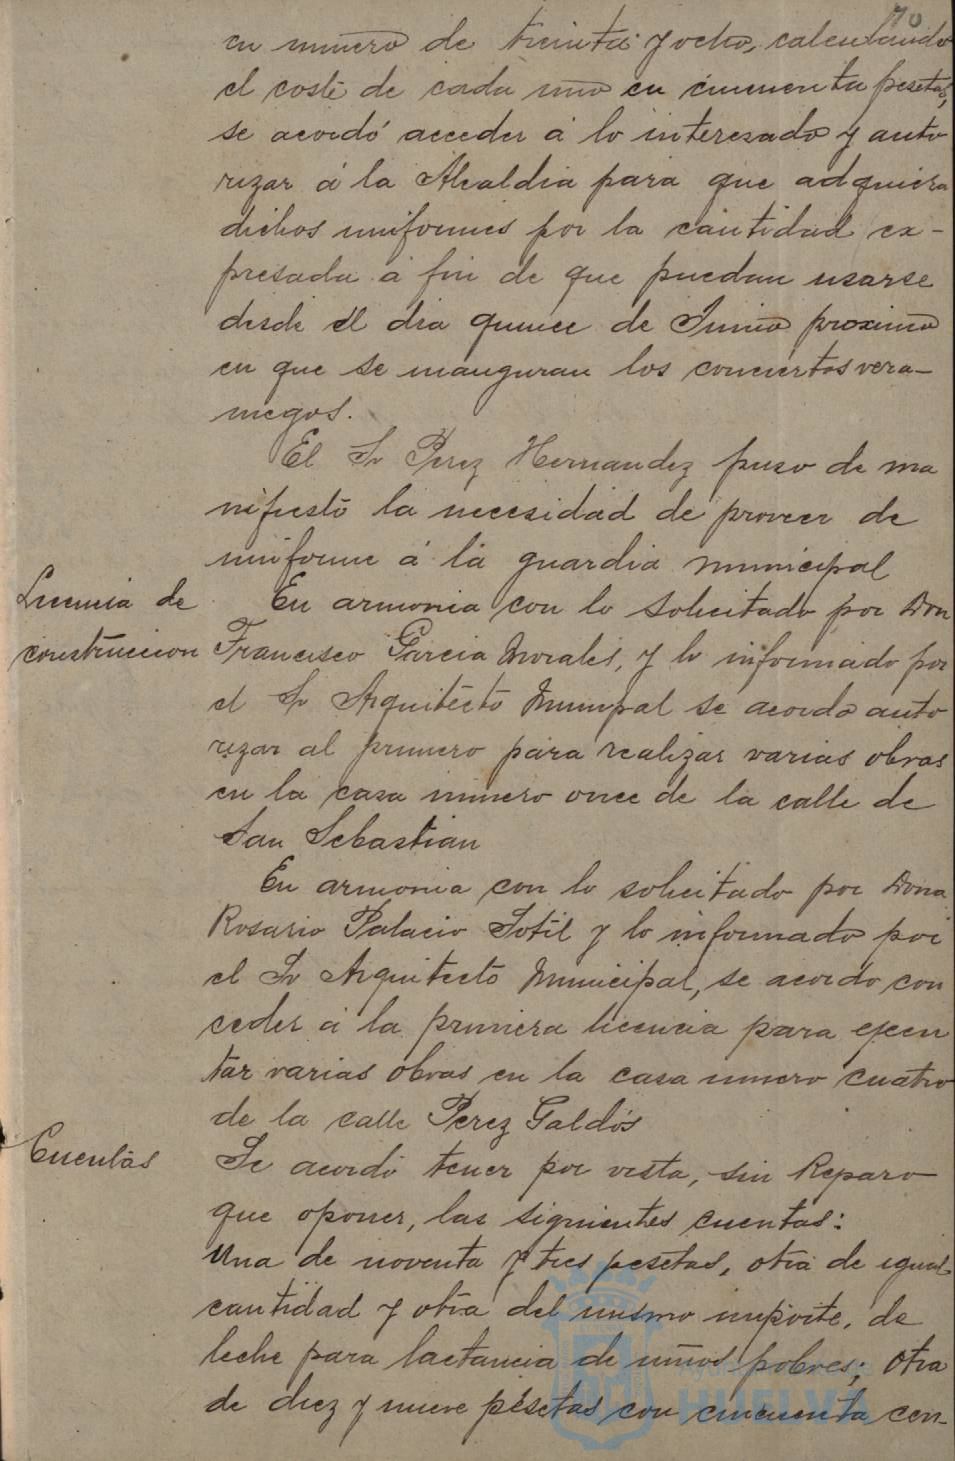 70
en numero de treinta y ocho, calculando
el coste de cada uno en cincuenta pesetas,
se acordó acceder á lo interesado y auto
rizar á la Alcaldia para que adquiera
dichos uniformes por la cantidad ex-
presada á fin de que puedan usarse
desde el dia quince de Junio proximo
en que se inauguran los conciertos vera-
niegos.
El Sr Perez Hernandez puso de ma
nifiesto la necesidad de proveer de
uniforme á la guardia municipal
Licencia de
construccion
En armonia con lo solicitado por Don
Francisco Garcia Morales, y lo informado por
el Sr Arquitecto Munipal se acordo auto
rizar al primero para realizar varias obras
en la casa numero once de la calle de
San Sebastian
En armonia con lo solicitado por Dona
Rosario Palacio Sotil y lo informado por
el Sr Arquitecto Municipal, se acordo con
ceder á la primera licencia para ejecu
tar varias obras en la casa numero cuatro
de la calle Perez Galdós
Cuentas
Se acordó tener por vista, sin Reparo
que oponer, las siguientes cuentas:
Una de noventa y tres pesetas, otra de igual
cantidad y otra del mismo importe, de
leche para lactancia de niños pobres; otra
de diez y nueve pesetas con cincuenta cen-
Ayuntamiento de
HUELVA